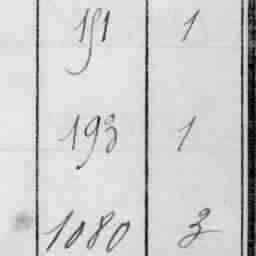 151 1
193 1
1080 3